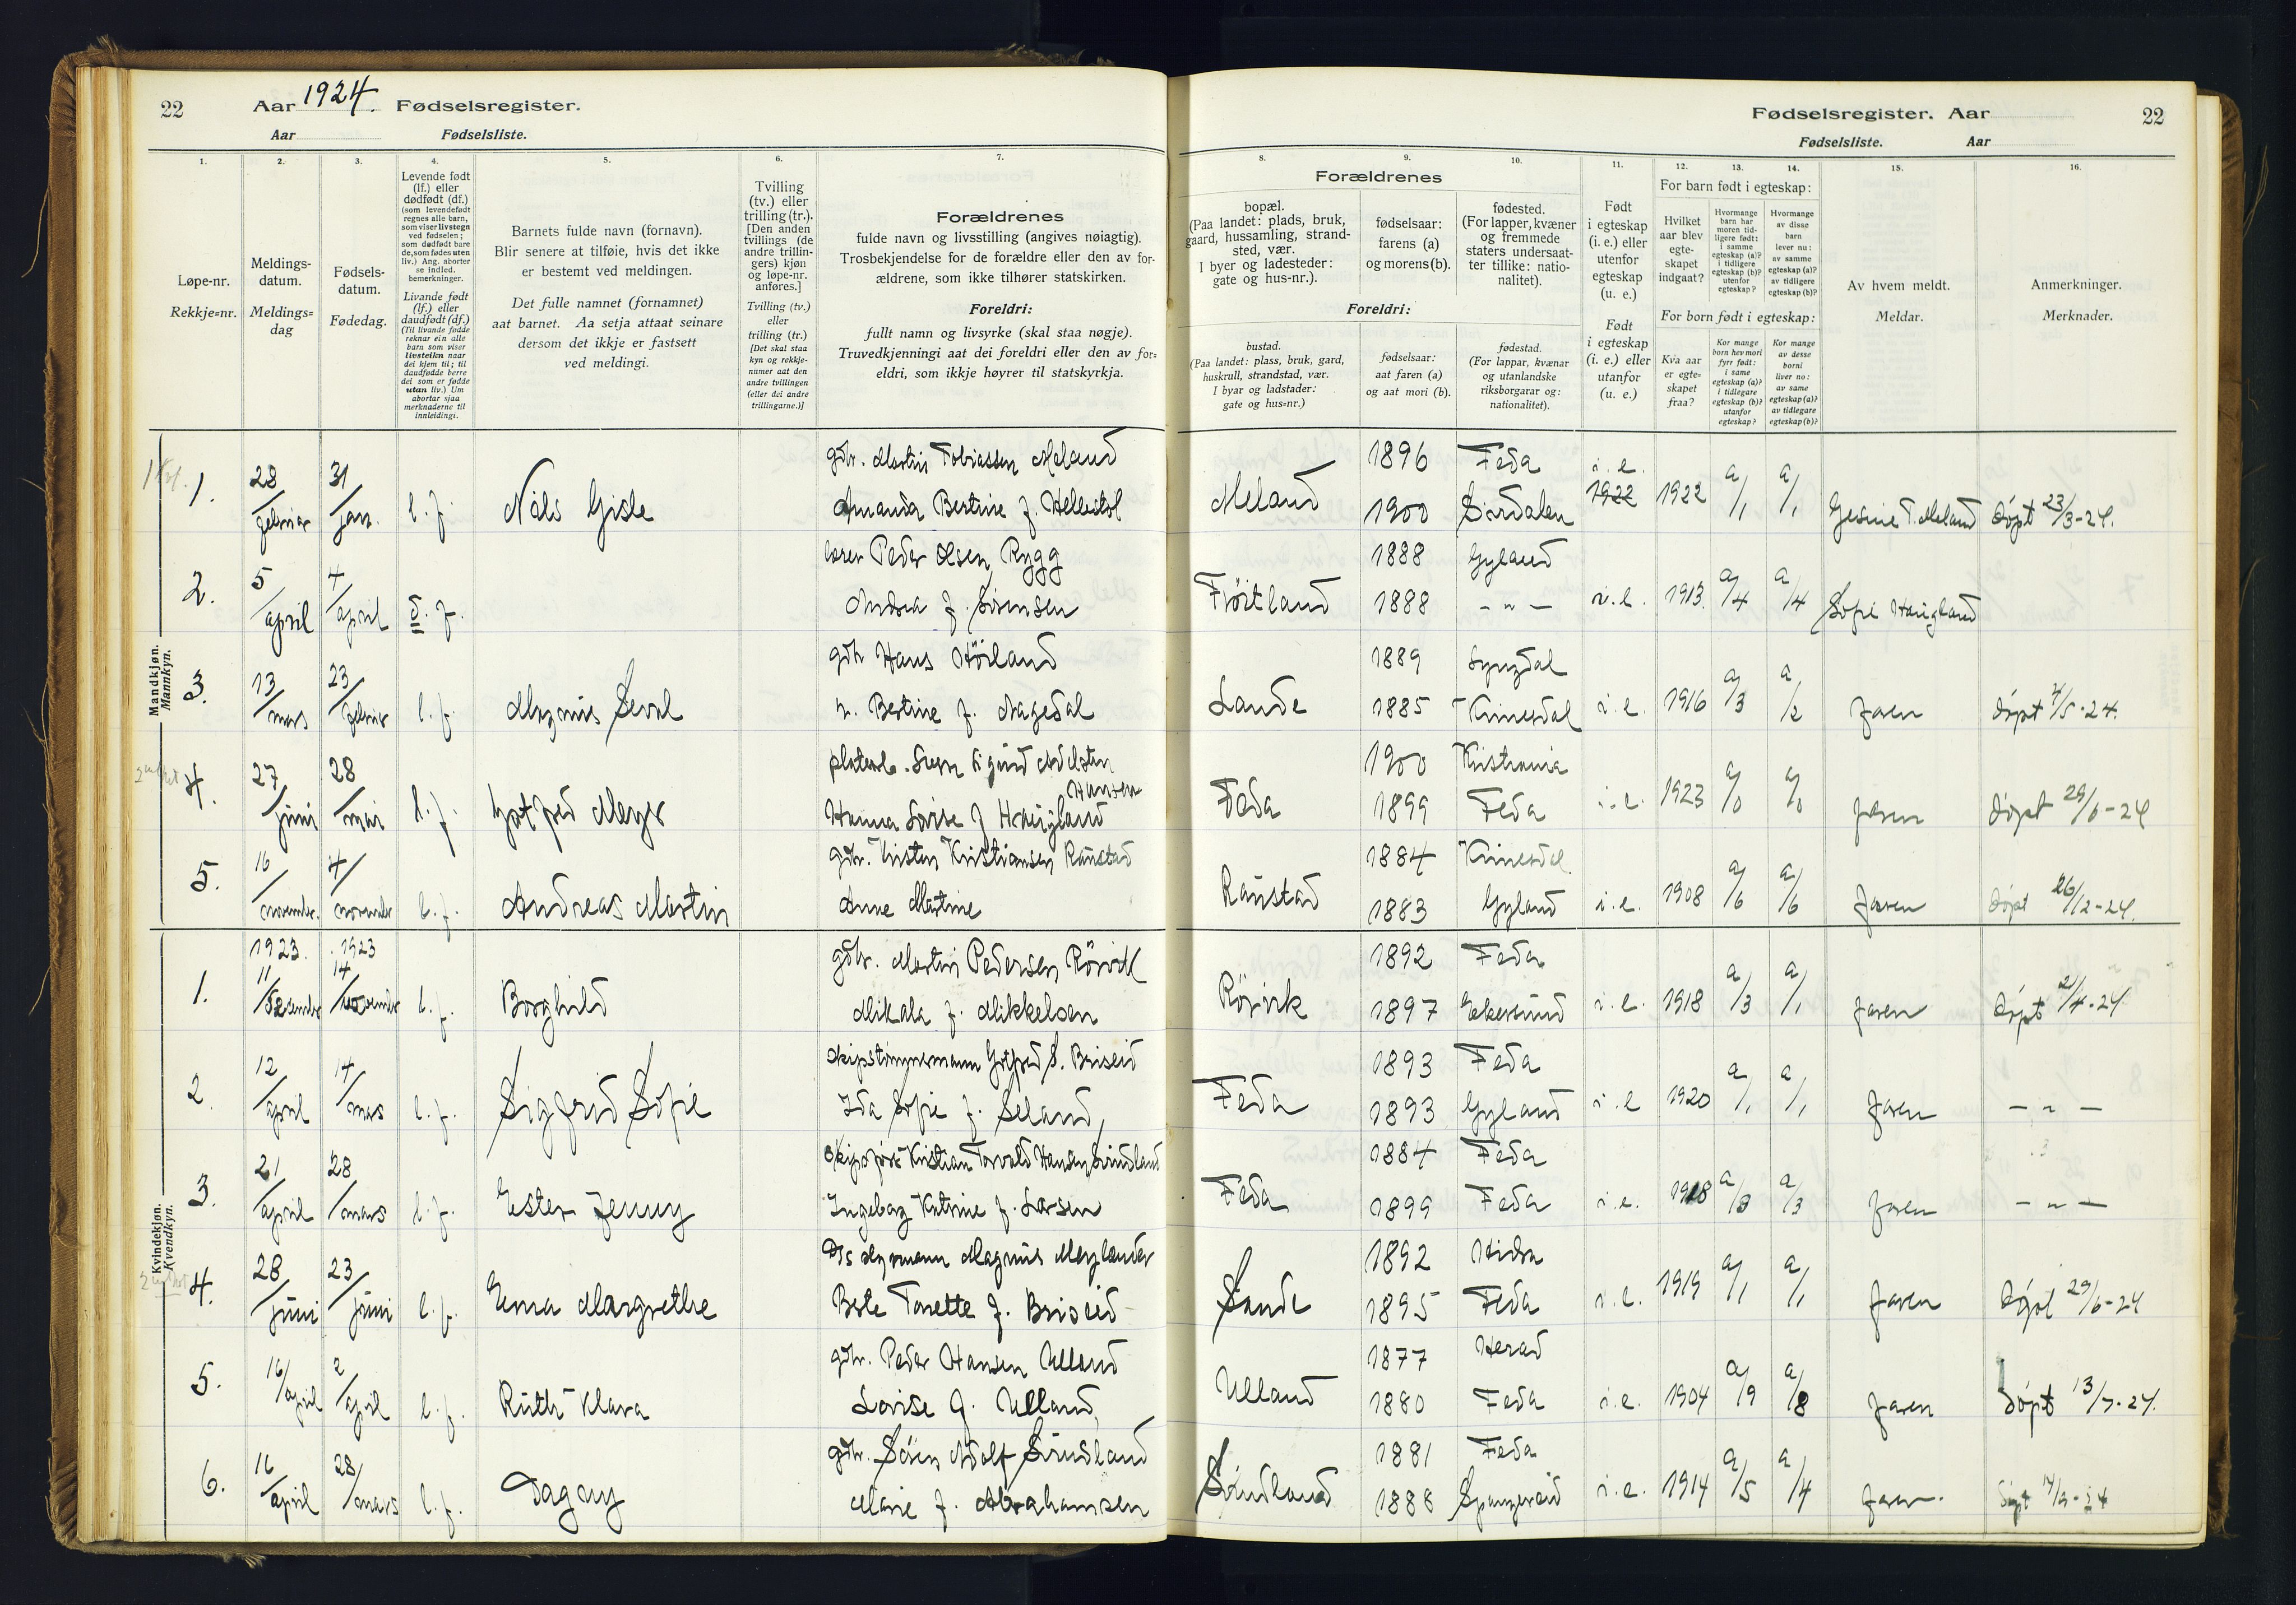 22
Aar 1924. Fødselsregister.
Aar Fødselsliste.
Fødselsregister. Aar
22
Fødselsliste. Aar
1.
Løpe-nr.
Rekkje=nr.
2.
Meldings-
datum.
Meldings=
dag
3.
Fødsels-
datum.
Fødedag.
4.
Levende født
(lf.) eller
dødfødt (df.)
(som levendefødt
regnes alle barn,
som viser livstegn
ved fødselen;
som dødfødt bare
de, som fødes uten
liv.) Ang. aborter
se indled.
bemerkninger.
Livande født
(lf.) eller
daudfødt (df.)
(Til livande fødde
reknar ein alle
barn som viser
livsteikn naar
dei kjem til; til
daudfødde berre
dei som er fødde
utan liv.) Um
abortar sjaa
merknaderne til
innleidingi.
5.
Barnets fulde navn (fornavn).
Blir senere at tilføie, hvis det ikke
er bestemt ved meldingen.
Det fulle namnet (fornamnet)
aat barnet. Aa setja attaat seinare
dersom det ikkje er fastsett
ved meldingi.
6.
Tvilling
(tv.) eller
trilling (tr.).
[Den anden
tvillings (de
andre trillin-
gers) kjøn
og løpe-nr.
anføres.]
Tvilling (tv.)
eller
trilling (tr.)
[Det skal staa
kyn og rekkje-
numer aat den
andre tvillingen
(eller dei andre
trillingarne.)]
7.
Forældrenes
fulde navn og livsstilling (angives nøiagtig).
Trosbekjendelse for de forældre eller den av for-
ældrene, som ikke tilhører statskirken.
Foreldri:
fullt namn og livsyrke (skal staa nøgje).
Truvedkjenningi aat dei foreldri eller den av for=
eldri, som ikkje høyrer til statskyrkja.
Forældrenes
8.
bopæl.
(Paa landet: plads, bruk,
gaard, hussamling, strand-
sted, vær.
I byer og ladesteder:
gate og hus-nr.).
9.
fødselsaar:
farens (a)
og morens (b).
10.
fødested.
(For lapper, kvæner
og fremmede
staters undersaat-
ter tillike: natio-
nalitet).
Foreldri:
bustad.
(Paa landet: plass, bruk, gard,
huskrull, strandstad, vær.
I byar og ladstader:
gate og hus=nr.)
fødselsaar:
aat faren (a)
og aat mori (b).
fødestad.
(For lappar, kvænar
og utanlandske
riksborgarar og:
nationalitet).
11.
Født
i egteskap
(i. e.) eller
utenfor
egteskap
(u. e.)
Født
i egteskap
(i. e.) eller
utanfor
(u. e.)
12. 13. 14.
For barn født i egteskap:
Hvilket
aar blev
egte-
skapet
indgaat?
Hvormange
barn har
moren tid-
ligere født:
i samme
egteskap (a)?
i tidligere
egteskap (b)?
utenfor
egteskap?
Hvormange
av disse
barn
lever nu:
av samme
egteskap (a)?
av tidligere
egteskap (b)?
For born født i egteskap:
Kva aar
er egte=
skapet
fraa?
Kor mange
born hev mori
fyrr født:
i same
egteskap (a)?
i tidlegare
egteskap (b)?
utanfor
egteskap?
Kor mange
av desse
borni
liver no:
av same
egteskap (a)?
av tidlegare
egteskap (b)?
15.
Av hvem meldt.
Meldar.
16.
Anmerkninger.
Merknader.
Mandkjøn.
Mannkyn.
1. 28/februar 31/jan. l. f. Nils Gisle
gdbr. Martin Tobiassen Meland
Amanda Bertine f. Hellestøl
Meland 1896 Feda
1900 Sirdalen
i. e. 1922 1922 a/1 a/1 Gesine T. Meland døpt 23/3-24.
2. 5/april 4/april d. f.
Peder Olsen Rygg
Andrea f. Sørensen
Frøitland 1888 Gyland
1888 – " –
i. e. 1913. a/4 a/4 Sofie Haugland
3. 13/mars 23/februar l. f. Magnus Seval
gdbr Hans Hörland
Bertine f. Aagedal
Lande 1889 Lyngdal
1885 Kvinesdal
i. e. 1916 a/3 a/2 faren døpt 4/5-24.
4. 27/juni 28/mai l. f. Gotfred Meyer
Sigurd Adelsten
Hansen
Hanna Lovise f Haugland
Feda 1900 Kristiania
1899 Feda
i. e. 1923 a/0 a/0 faren døpt 29/6-24
5. 16/november. 4/november l. f. Andreas Martin
gdbr. Kristen Kristiansen Raustad
Anne Martine
Raustad 1884 Kvinesdal
1883 Gyland
i. e. 1908 a/6 a/6 faren døpt 26/12-24.
Kvindekjøn.
Kvendkyn.
1. 1923. 11/desember 1923 14/november l. f. Borghild
gdbr. Martin Pedersen Rörvik
Mikala f. Mikkelsen
Rörvik 1892 Feda
1897 Ekersund
i. e. 1918 a/3 a/1 faren døpt 21/4-24
2. 12/april 14/mars l. f. Sigfrid Sofie
skipstømmermann Gotfred S. Briseid
Ida Sofie f. Seland,
Feda 1893 Feda
1893 Gyland
i. e 1920 a/1 a/1 faren – " –
3. 21/april 28/mars l. f. Ester Jenny
skipsfører Kristian Torvald Hansen Sindland
Ingeborg Katrine f. Larsen
Feda 1884 Feda
1899 Feda
i. e. 1918 a/3 a/3 faren – " –
4. 28/juni 23/juni l. f. Erna Margrethe
Magnus Meylander
Berte Tonette f. Briseid
Sande 1892 Hidra
1895 Feda
i. e. 1919 a/1 a/1 faren døpt 29/6-24
5. 16/april 2/april l. f. Ruth Klara
gdbr. Peder Hansen Ulland
Lovise f. Ulland,
Ulland 1877 Herad
1880 Feda
i. e. 1904 a/9 a/8 faren døpt 13/7-24.
6. 16/april 28/mars l. f. Dagny
gdbr. Sören Adolf Sindland
Marie f. Abrahamsen
Sindland 1881 Feda
1888 Spangereid
i. e. 1914 a/5 a/4 faren. døpt 14/9-24